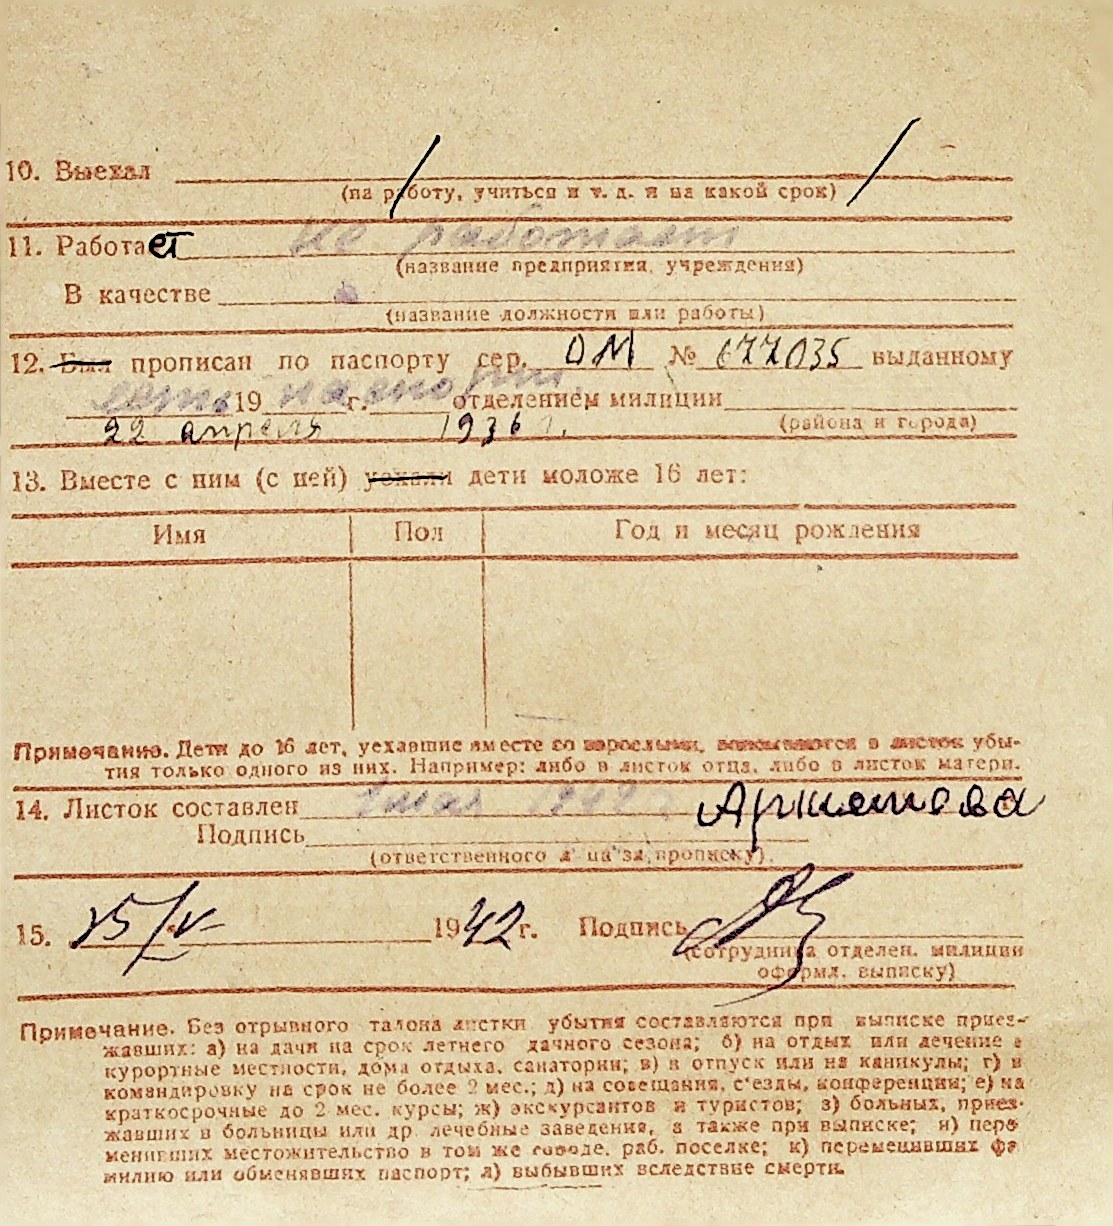 10. Выехал
(на работу, учиться и т. д. и на какой срок)
11. Работает не работает
(название предприятия, учреждения)
В качестве
(название должности или работы)
12. Был прописан по паспорту сер. ОМ № 677035 выданному
есть 19 паспорт. г. отделением милиции
22 апреля 1936 г. (района и города)
13. Вместе с ним (с ней) уехали дети моложе 16 лет:
Имя Пол Год и месяц рождения
Примечание. Дети до 16 лет, уехавшие вместе со взрослыми, вписываются в листок убы-
тия только одного из них. Например: либо в листок отца, либо в листок матери.
14. Листок составлен мая 1942 г.
Подпись
(ответственного за прописку)
15. 15/V 1942 г. Подпись
(сотрудника отделен. милиции
оформл. выписку)
Примечание. Без отрывного талона листки убытия составляются при выписке приез-
жавших: а) на дачи на срок летнего дачного сезона; б) на отдых или лечение в
курортные местности, дома отдыха, санатории; в) в отпуск или на каникулы; г) в
командировку на срок не более 2 мес.; д) на совещания, с'езды, конференции; е) на
краткосрочные до 2 мес. курсы; ж) экскурсантов и туристов; з) больных, приез-
жавших в больницы или др. лечебные заведения, а также при выписке; и) пере-
менивших местожительство в том же городе, раб. поселке; к) переменивших фа-
милию или обменявших паспорт; л) выбывших вследствие смерти.